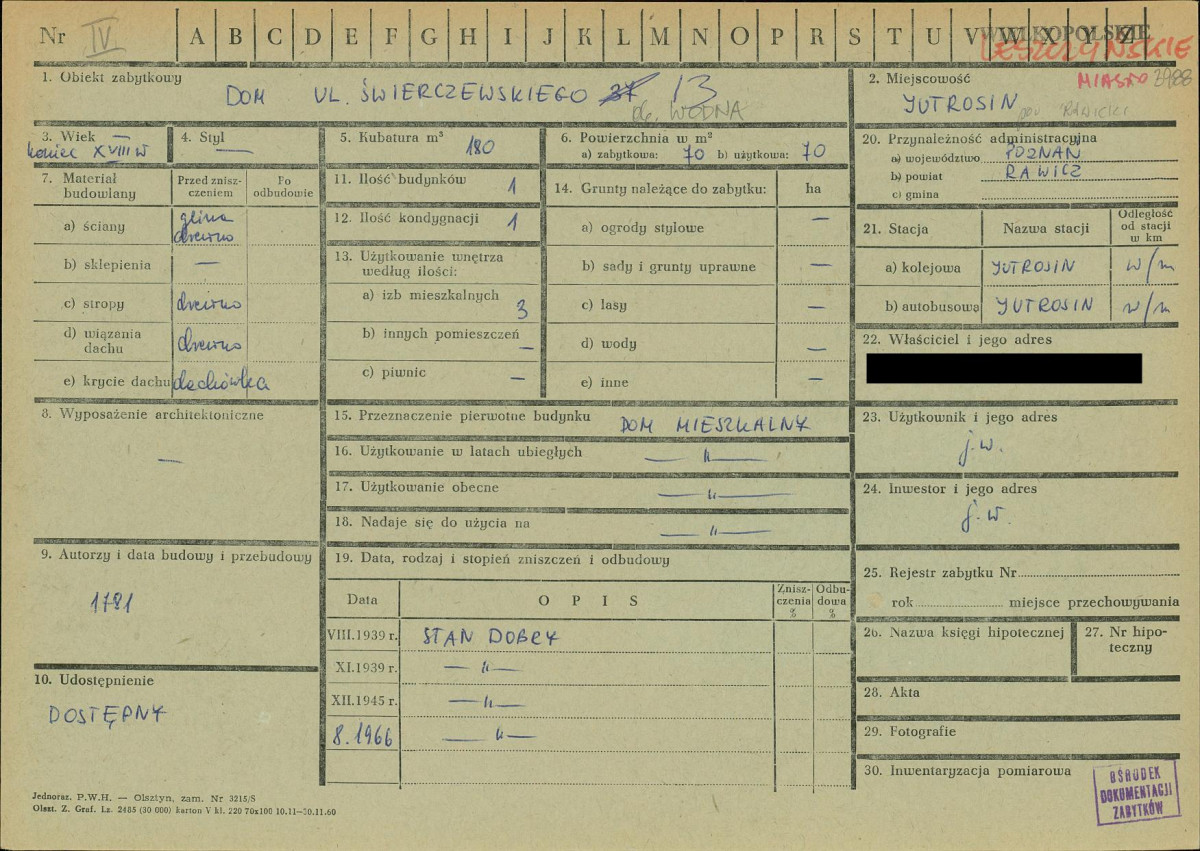 Nr IV A B C D E F G H I J K L M N O P R S T U V W X Y Z WIELKOPOLSKIE
LESZCZYŃSKIE
MIASTO
1. Obiekt zabytkowy
DOM UL. ŚWIERCZEWSKIEGO 37 13
WODNA
2. Miejscowość
JUTROSIN
pow RAWICKI
3. Wiek —
koniec XVIII W
4. Styl
—
5. Kubatura m³
180
6. Powierzchnia w m²
a) zabytkowa: 70 b) użytkowa: 70
7. Materiał budowlany
Przed znisz-
czeniem
Po
odbudowie
a) ściany glina
drewno
b) sklepienia —
c) stropy drewno
d) wiązania
dachu drewno
e) krycie dachu dachówka
8. Wyposażenie architektoniczne
—
9. Autorzy i data budowy i przebudowy
1781
10. Udostępnienie
DOSTĘPNY
11. Ilość budynków 1
12. Ilość kondygnacji 1
13. Użytkowanie wnętrza
według ilości:
a) izb mieszkalnych 3
b) innych pomieszczeń —
c) piwnic —
14. Grunty należące do zabytku: ha
a) ogrody stylowe —
b) sady i grunty uprawne —
c) lasy —
d) wody —
e) inne —
15. Przeznaczenie pierwotne budynku DOM MIESZKALNY
16. Użytkowanie w latach ubiegłych —"—
17. Użytkowanie obecne —"—
18. Nadaje się do użycia na —"—
19. Data, rodzaj i stopień zniszczeń i odbudowy
Data O P I S Znisz-
czenia
%
Odbu-
dowa
%
VIII.1939 r. STAN DOBRY
XI.1939 r. —"—
XII.1945 r. —"—
8.1966 —"—
20. Przynależność administracyjna
a) województwo POZNAŃ
b) powiat RAWICZ
c) gmina
21. Stacja Nazwa stacji Odległość
od stacji
w km
a) kolejowa JUTROSIN w/m
b) autobusowa JUTROSIN w/m
22. Właściciel i jego adres
23. Użytkownik i jego adres
j.w.
24. Inwestor i jego adres
j.w.
25. Rejestr zabytku Nr
rok miejsce przechowywania
26. Nazwa księgi hipotecznej
27. Nr hipo-
teczny
28. Akta
29. Fotografie
30. Inwentaryzacja pomiarowa
OŚRODEK
DOKUMENTACJI
ZABYTKÓW
Jednoraz. P.W.H. — Olsztyn, zam. Nr 3215/S
Olszt. Z. Graf. Lz. 2485 (30 000) karton V kl. 220 70x100 10.11—30.11.60